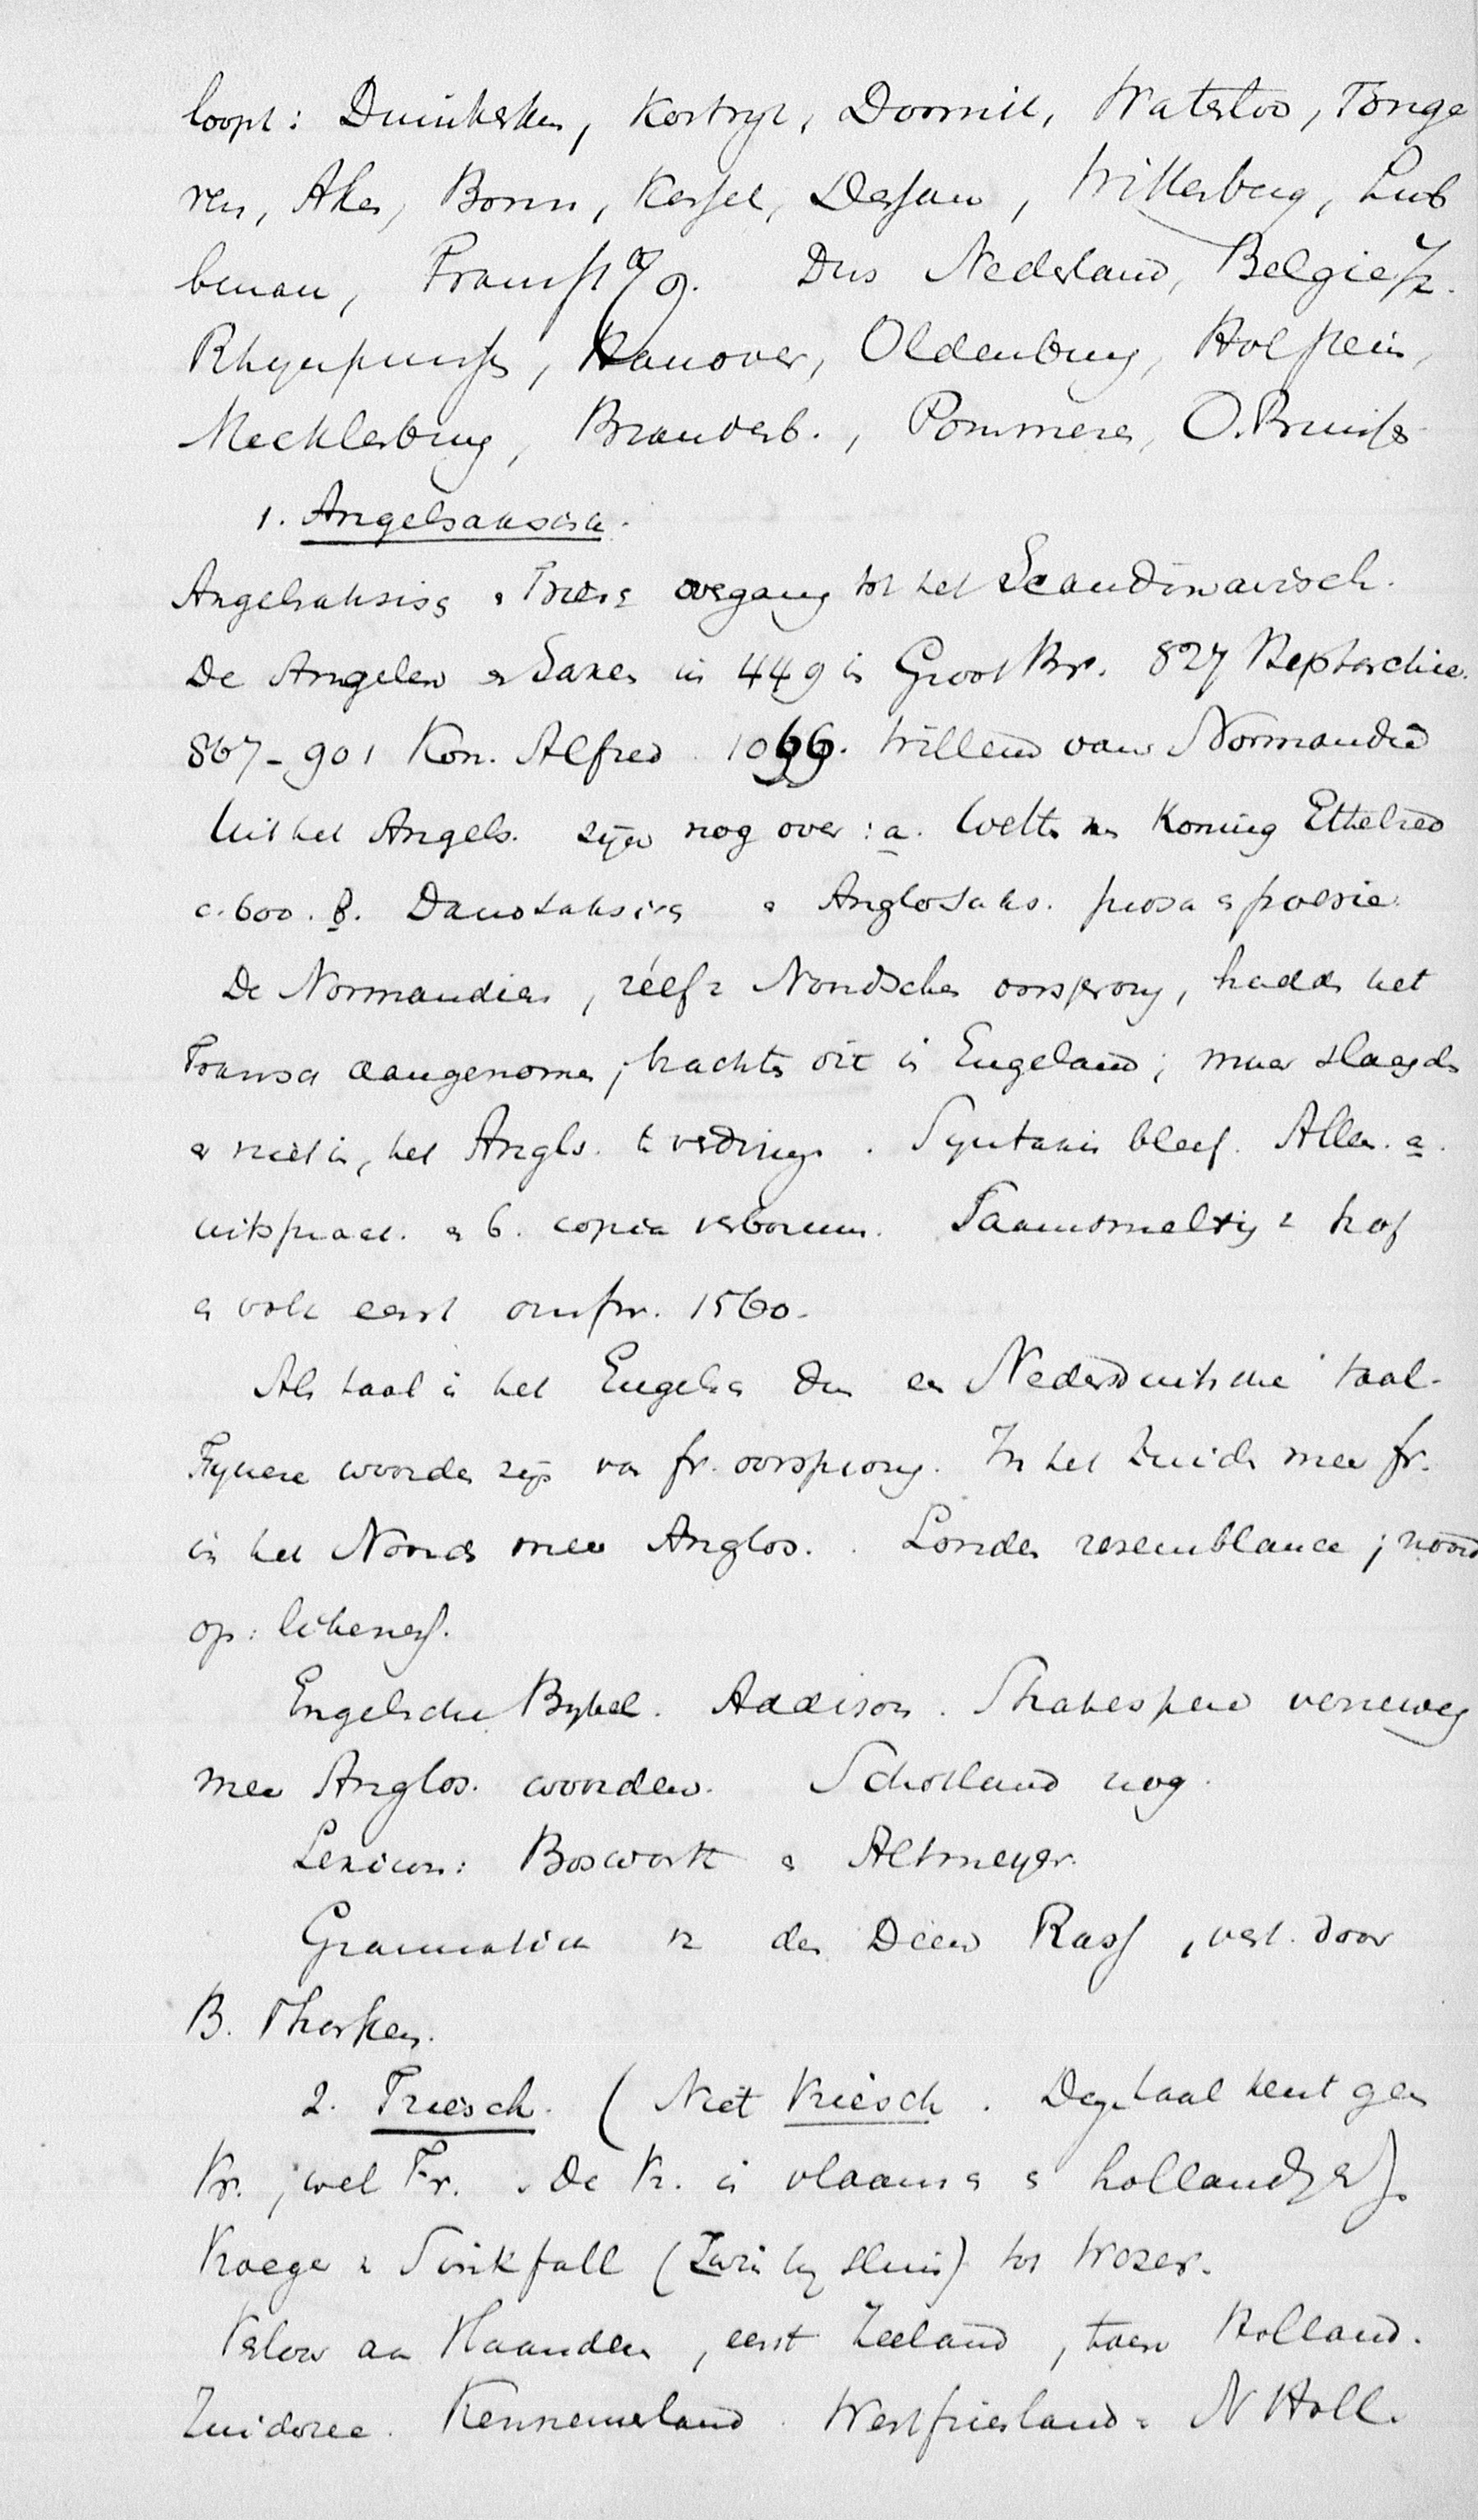 loopt: Duinkerken, Kortryk, Doornik, Waterloo, Tonge
ren, Aken, Bonn, Kassel, Dessau, Wittenberg, Lub
benau, Frankft a/O. Dus Nederland, Belgie ½.
Rhynpruiss, Hanover, Oldenburg, Holstein,
Mecklenburg, Brandenb., Pommeren, O. Pruissen
1. Angelsaksisch.
Angelsaksisch & Friesch overgang tot het Scandinavisch.
De Angelen en Saxen in 449 in Groot Br. 827 Heptarchie.
867-901 Kon. Alfred. 1066. Willem van Normandie
Uit het Angels. zijn nog over: a. Wetten van Koning Ethelred
c. 600. b. Danosaksisch & Anglosaks. proza & poesie.
De Normandiers, zelf v Noordschen oorsprong, hadden het
Fransch aangenomen; brachten dit in Engeland; maar slaagden
er niet in, het Angls. te verdringen. Syntaxis bleef. Alleen. a.
uitspraak. & b. copia verborum. Saamsmelting v hof
& volk eerst omstr. 1560.
Als taal is het Engelsch dus een Nederduitsche taal.
Fynere woorden zijn van fr. oorsprong. In het Zuiden meer fr.
in het Noorden meer Anglos.. Londen resemblance; noord
op: likeness.
Engelsche Bybel. Addison. Shakespere verreweg
meer Anglos. woorden. Schotland nog.
Lexicon: Bosworth & Altmeyer.
Grammatica v den Deen Rask, vert. door
B. Thorpen.
2. Friesch. (Niet Vriesch. Deze taal kent geen
Vr.; wel Fr. De V. is vlaamsch & hollandsch).
Vroeger v Sinkfall (Zwin by Sluis) tot Wezer.
Verlor aan Vlaanderen, eerst Zeeland, toen Holland.
Zuiderzee. Kennemerland. Westfriesland = N Holl.